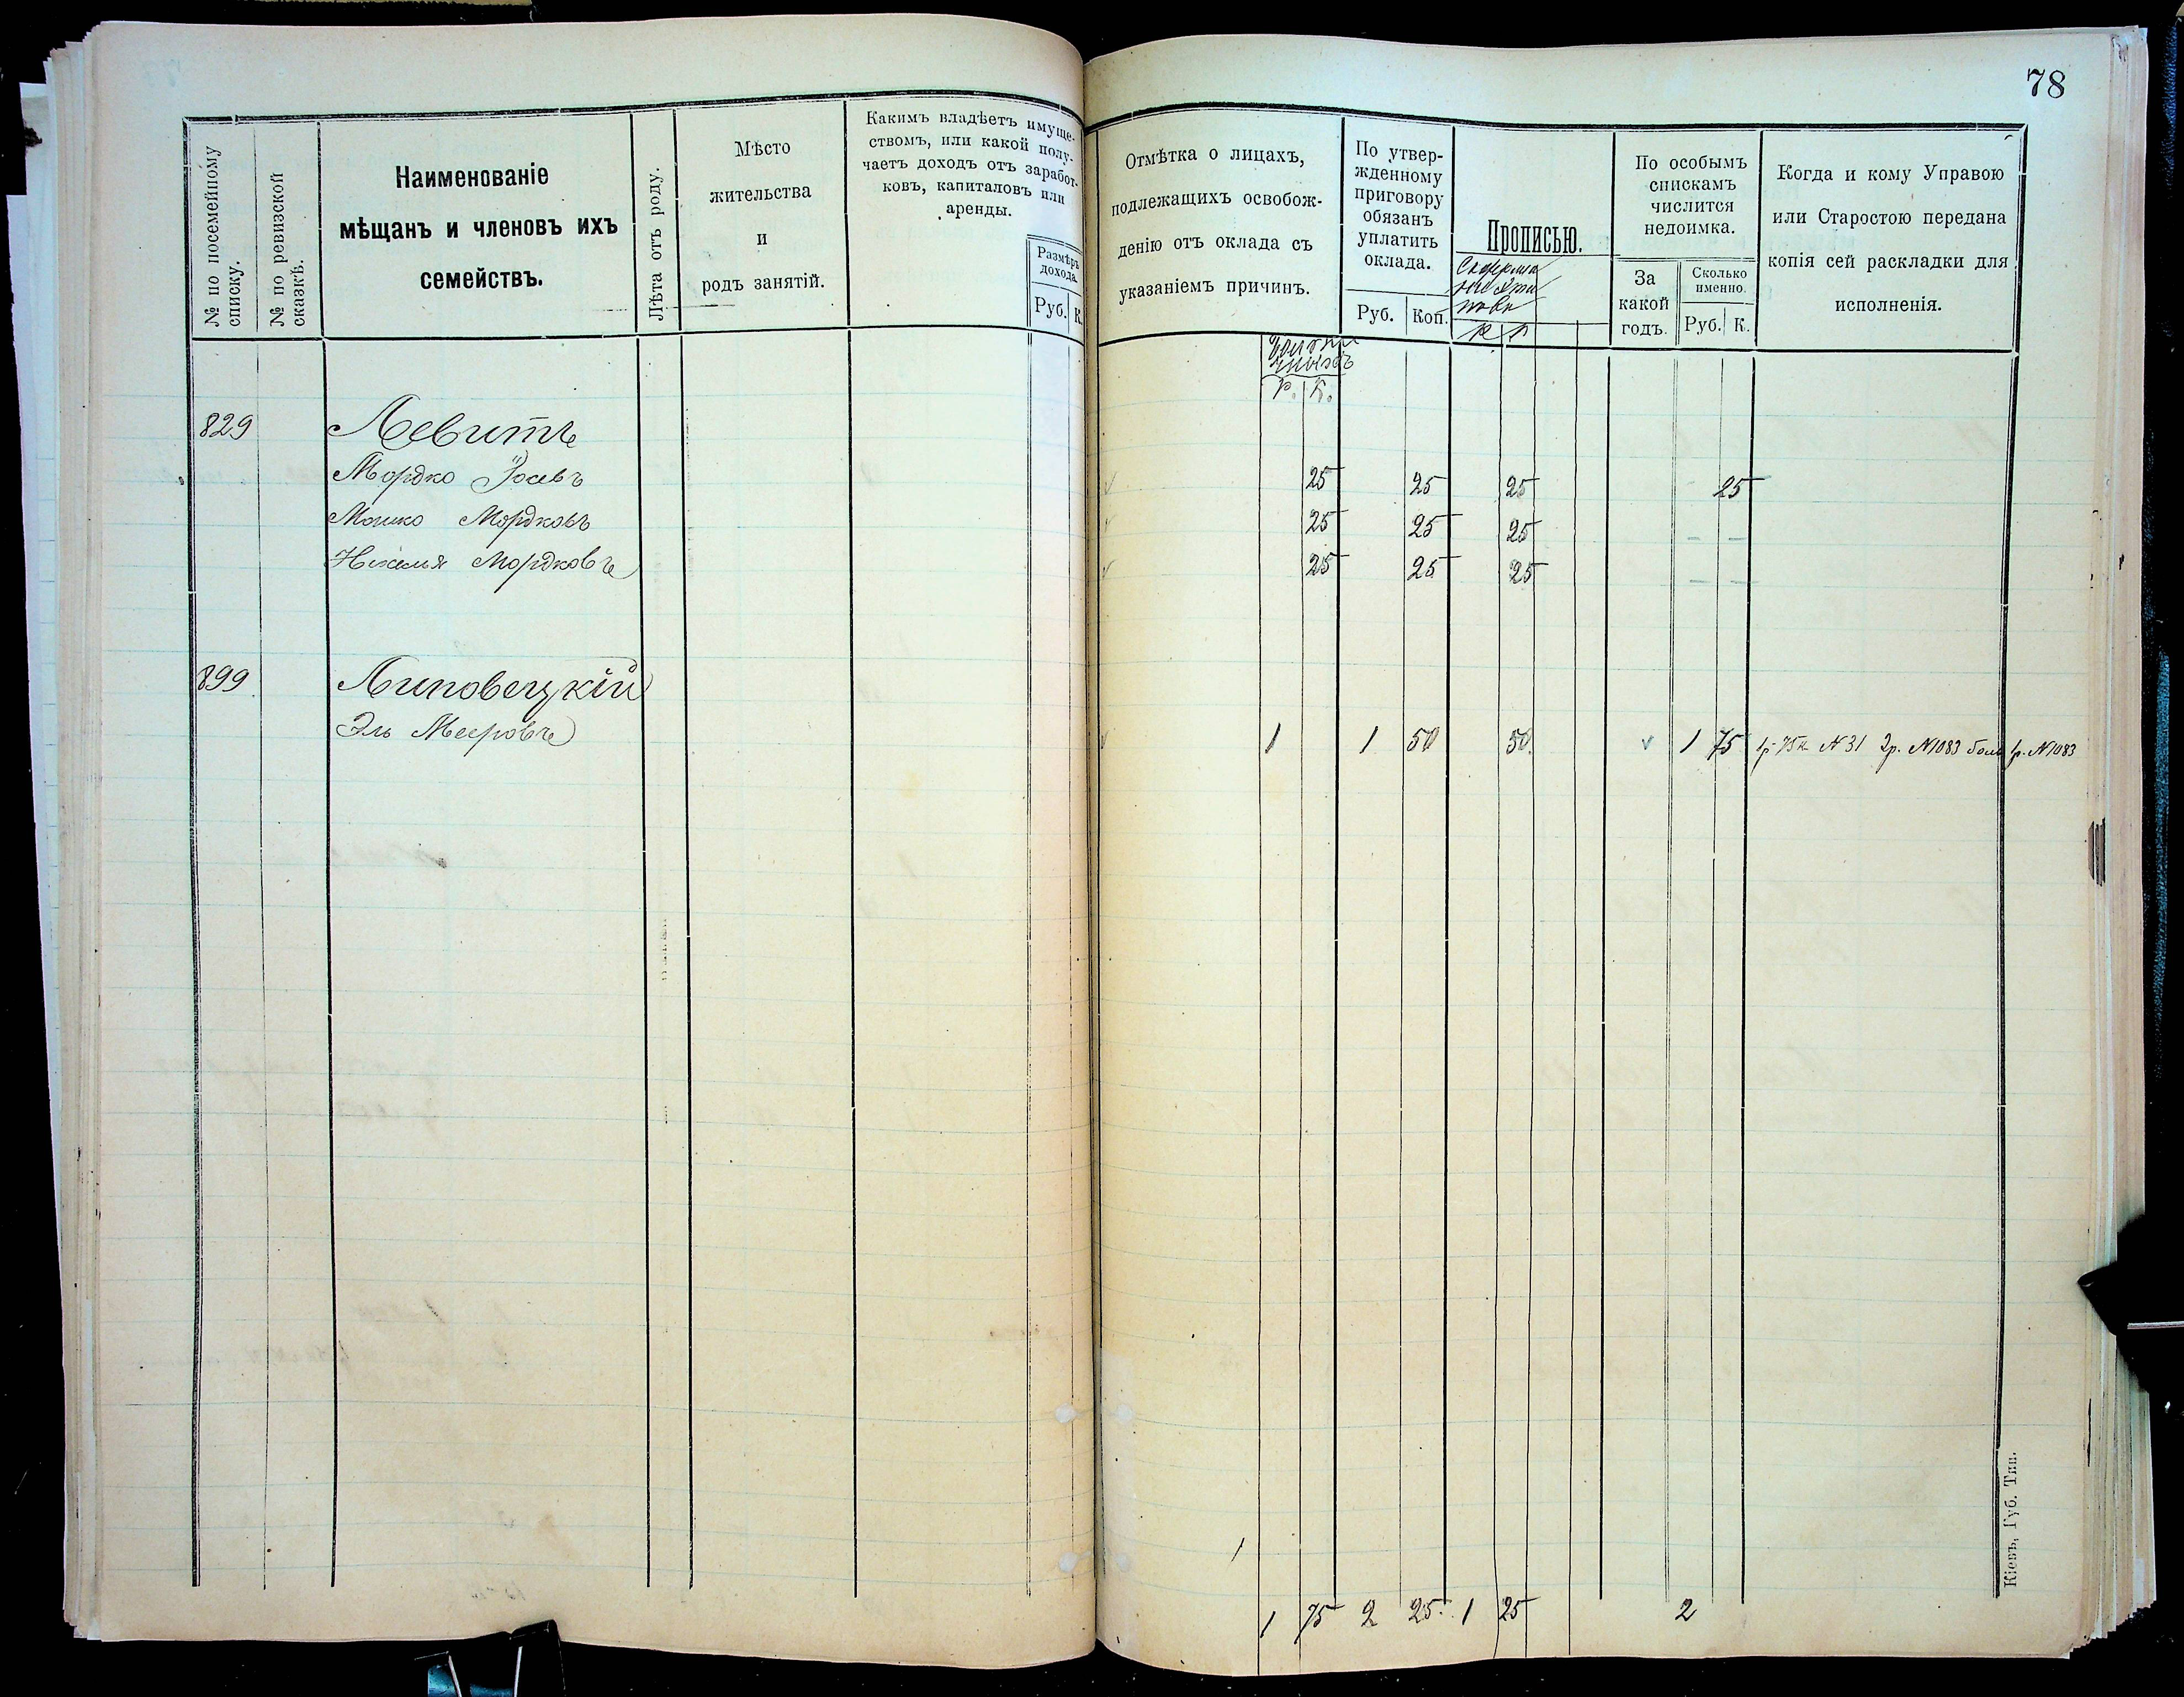 78
№ по посемейному
списку.
№ по ревизской
сказкѣ.
Наименованіе
мѣщанъ и членовъ ихъ
семействъ.
Лѣта отъ роду.
Мѣсто
жительства
и
родъ занятій.
Какимъ владѣетъ имуще-
ствомъ, или какой полу-
чаетъ доходъ отъ заработ-
ковъ, капиталовъ или
аренды.
Размѣръ
дохода.
Руб. К.
Отмѣтка о лицахъ,
подлежащихъ освобож-
денію отъ оклада съ
указаніемъ причинъ.
По утвер-
жденному
приговору
обязанъ
уплатить
оклада.
Руб. Коп.
Прописью.
По особымъ
спискамъ
числится
недоимка.
За
какой
годъ.
Сколько
именно.
Руб. К.
Когда и кому Управою
или Старостою передана
копія сей раскладки для
исполненія.
Р. К.
829 Левитъ
Мордко Іосевъ 25 25 25 25
Мошко Мордковъ 25 25 25
Мордковъ 25 25 25
899 Липовецкій
Эль Мееровъ 1 1 50 50. 1 75 1р 75к №31 2р. №1083 1р. №1083
1 75 2 25. 1 25 2
Кіевъ, Губ. Тип.